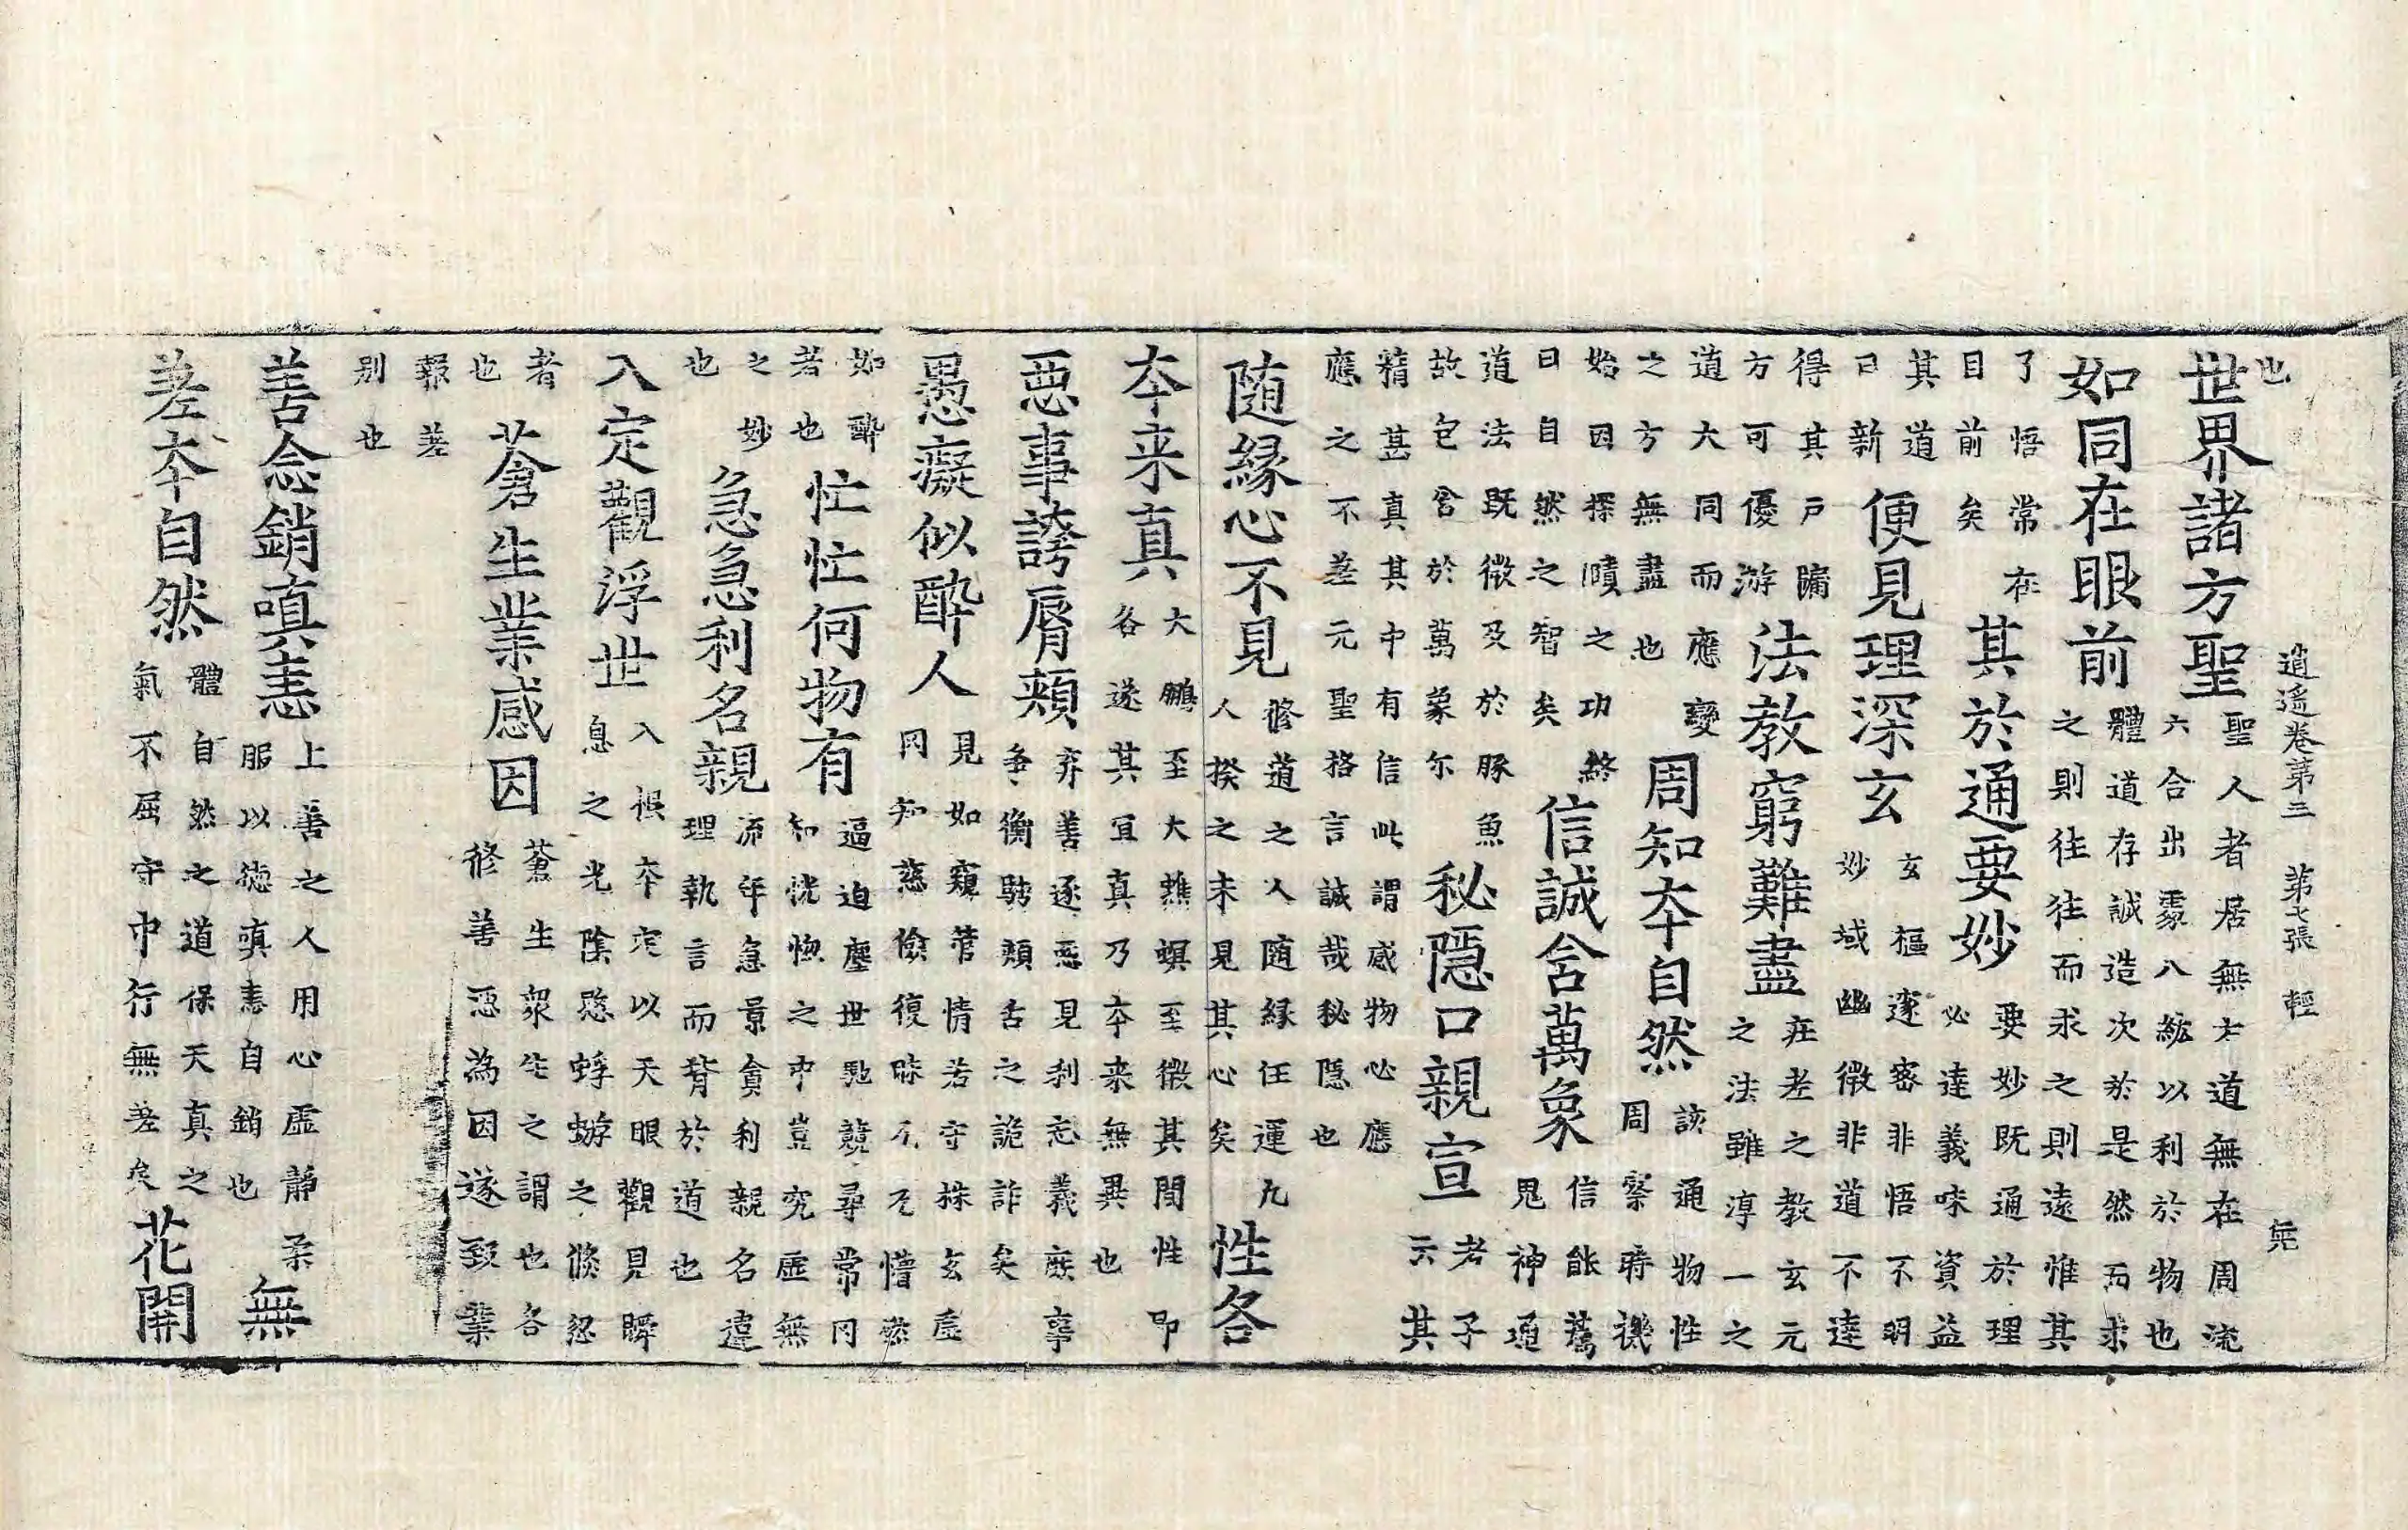 逍遥卷第三 第七張 輕
也
世界諸方聖
聖人者居無方道無在周流
六合出處八紘以利於物也
如同在眼前
體道存誠造次於是然而求
之則往往而求之則遠惟其
了悟常在
目前矣
其於通要妙
要妙既通於理
必達義味資益
其道
日新
便見理深玄
玄樞邃密非悟不明
妙域幽微非道不達
得其戶牖
方可優游
法教窮難盡
在老之教玄元
之法雖淳一之
道大同而應變
之方無盡也
周知本自然
該通物性
周察時機
始因探賾之功終
曰自然之智矣
信誠含萬象
信能薦
鬼神通
道法既微及於豚魚
故包含於萬象尔
秘隱口親宣
老子
云其
精甚真其中有信此謂感物必應
應之不差元聖格言誠哉秘隱也
随緣心不見
修道之人随緣任運凡
人揆之未見其心矣
性各
本来真
大鵬至大蟭螟至微其間性即
各遂其宜真乃本来無異也
惡事誇脣頰
弃善逐惡見利忘義庶事
争衡騁頰舌之詭詐矣
愚癡似酔人
見如窺管情若守株玄虛
罔知慈儉復昧懵然
如酔
者也
忙忙何物有
逼迫塵世馳競尋常罔
知恍惚之中豈究虛無
之妙
也
急急利名親
流年急景貪利親名違
理執言而背於道也
入定觀浮世
入根本定以天眼觀見瞬
息之光陰愍蜉蝣之倏忽
者
也
蒼生業感因
蒼生衆生之謂也各
修善惡為因遂致業
報差
别也
善念銷嗔恚
上善之人用心虛靜柔
服以德嗔恚自銷也
無
差本自然
體自然之道保天真之
氣不屈守中行無差矣
花開